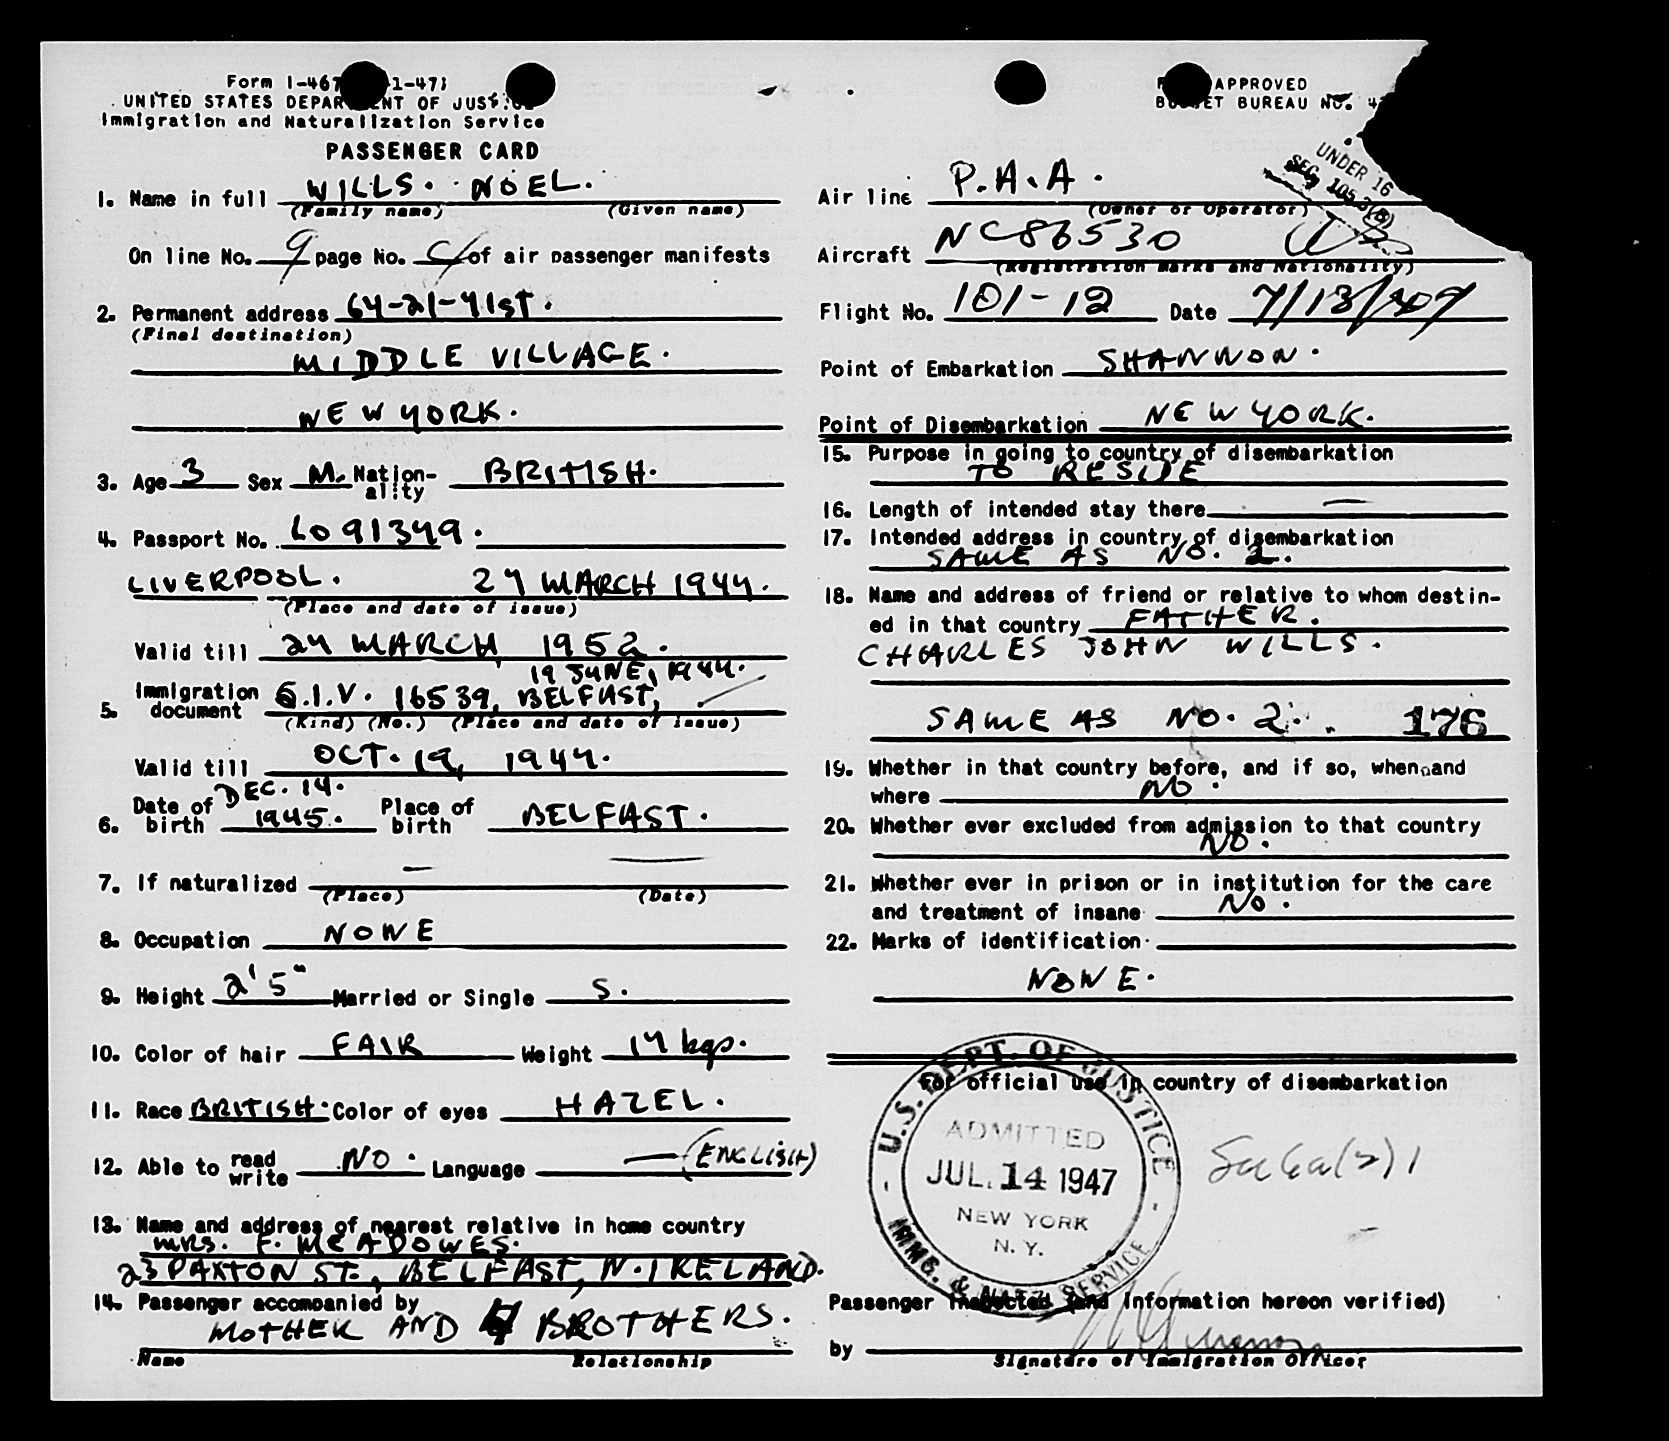 Form I-467 1-47)
UNITED STATES DEPARTMENT OF JUSTICE
Immigration and Naturalization Service
PASSENGER CARD
1. Name in full WILLS. NOEL.
(Family name) (Given name)
On line No. 9 page No. C of air passenger manifests
2. Permanent address 64-21-41ST.
(Final destination)
MIDDLE VILLAGE.
NEW YORK.
3. Age 3 Sex M. Nationality BRITISH.
4. Passport No. LO 91349.
LIVERPOOL. 24 MARCH 1944.
(Place and date of issue)
Valid till 24 MARCH 1952.
19 JUNE, 1944.
5. Immigration document Q.I.V. 16539, BELFAST,
(Kind) (No.) (Place and date of issue)
Valid till OCT. 19, 1944.
6. Date of birth DEC. 14. 1945. Place of birth BELFAST.
7. If naturalized —
(Place) (Date)
8. Occupation NONE
9. Height 2' 5" Married or Single S.
10. Color of hair FAIR Weight 14 kgs.
11. Race BRITISH. Color of eyes HAZEL.
12. Able to read write NO. Language — (ENGLISH)
13. Name and address of nearest relative in home country
MRS. F. MCADOWES.
23 PAXTON ST., BELFAST, N. IRELAND.
14. Passenger accompanied by
MOTHER AND 4 BROTHERS.
Name Relationship
FORM APPROVED
BUDGET BUREAU NO. 4
UNDER 16
SEC. 105.3(B)
Air line P.A.A.
(Owner or Operator)
Aircraft NC86530
(Registration marks and Nationality)
Flight No. 101-12 Date 7/13/47
Point of Embarkation SHANNON.
Point of Disembarkation NEW YORK.
15. Purpose in going to country of disembarkation
TO RESIDE
16. Length of intended stay there —
17. Intended address in country of disembarkation
SAME AS NO. 2.
18. Name and address of friend or relative to whom destin-
ed in that country FATHER.
CHARLES JOHN WILLS.
SAME AS NO. 2. 176
19. Whether in that country before, and if so, when and
where NO.
20. Whether ever excluded from admission to that country
NO.
21. Whether ever in prison or in institution for the care
and treatment of insane NO.
22. Marks of identification
NONE.
For official use in country of disembarkation
U.S. DEPT. OF JUSTICE
ADMITTED
JUL. 14 1947
NEW YORK
N. Y.
IMMG. & NATZ. SERVICE
Passenger inspected (and information hereon verified)
by
Signature of Immigration Officer